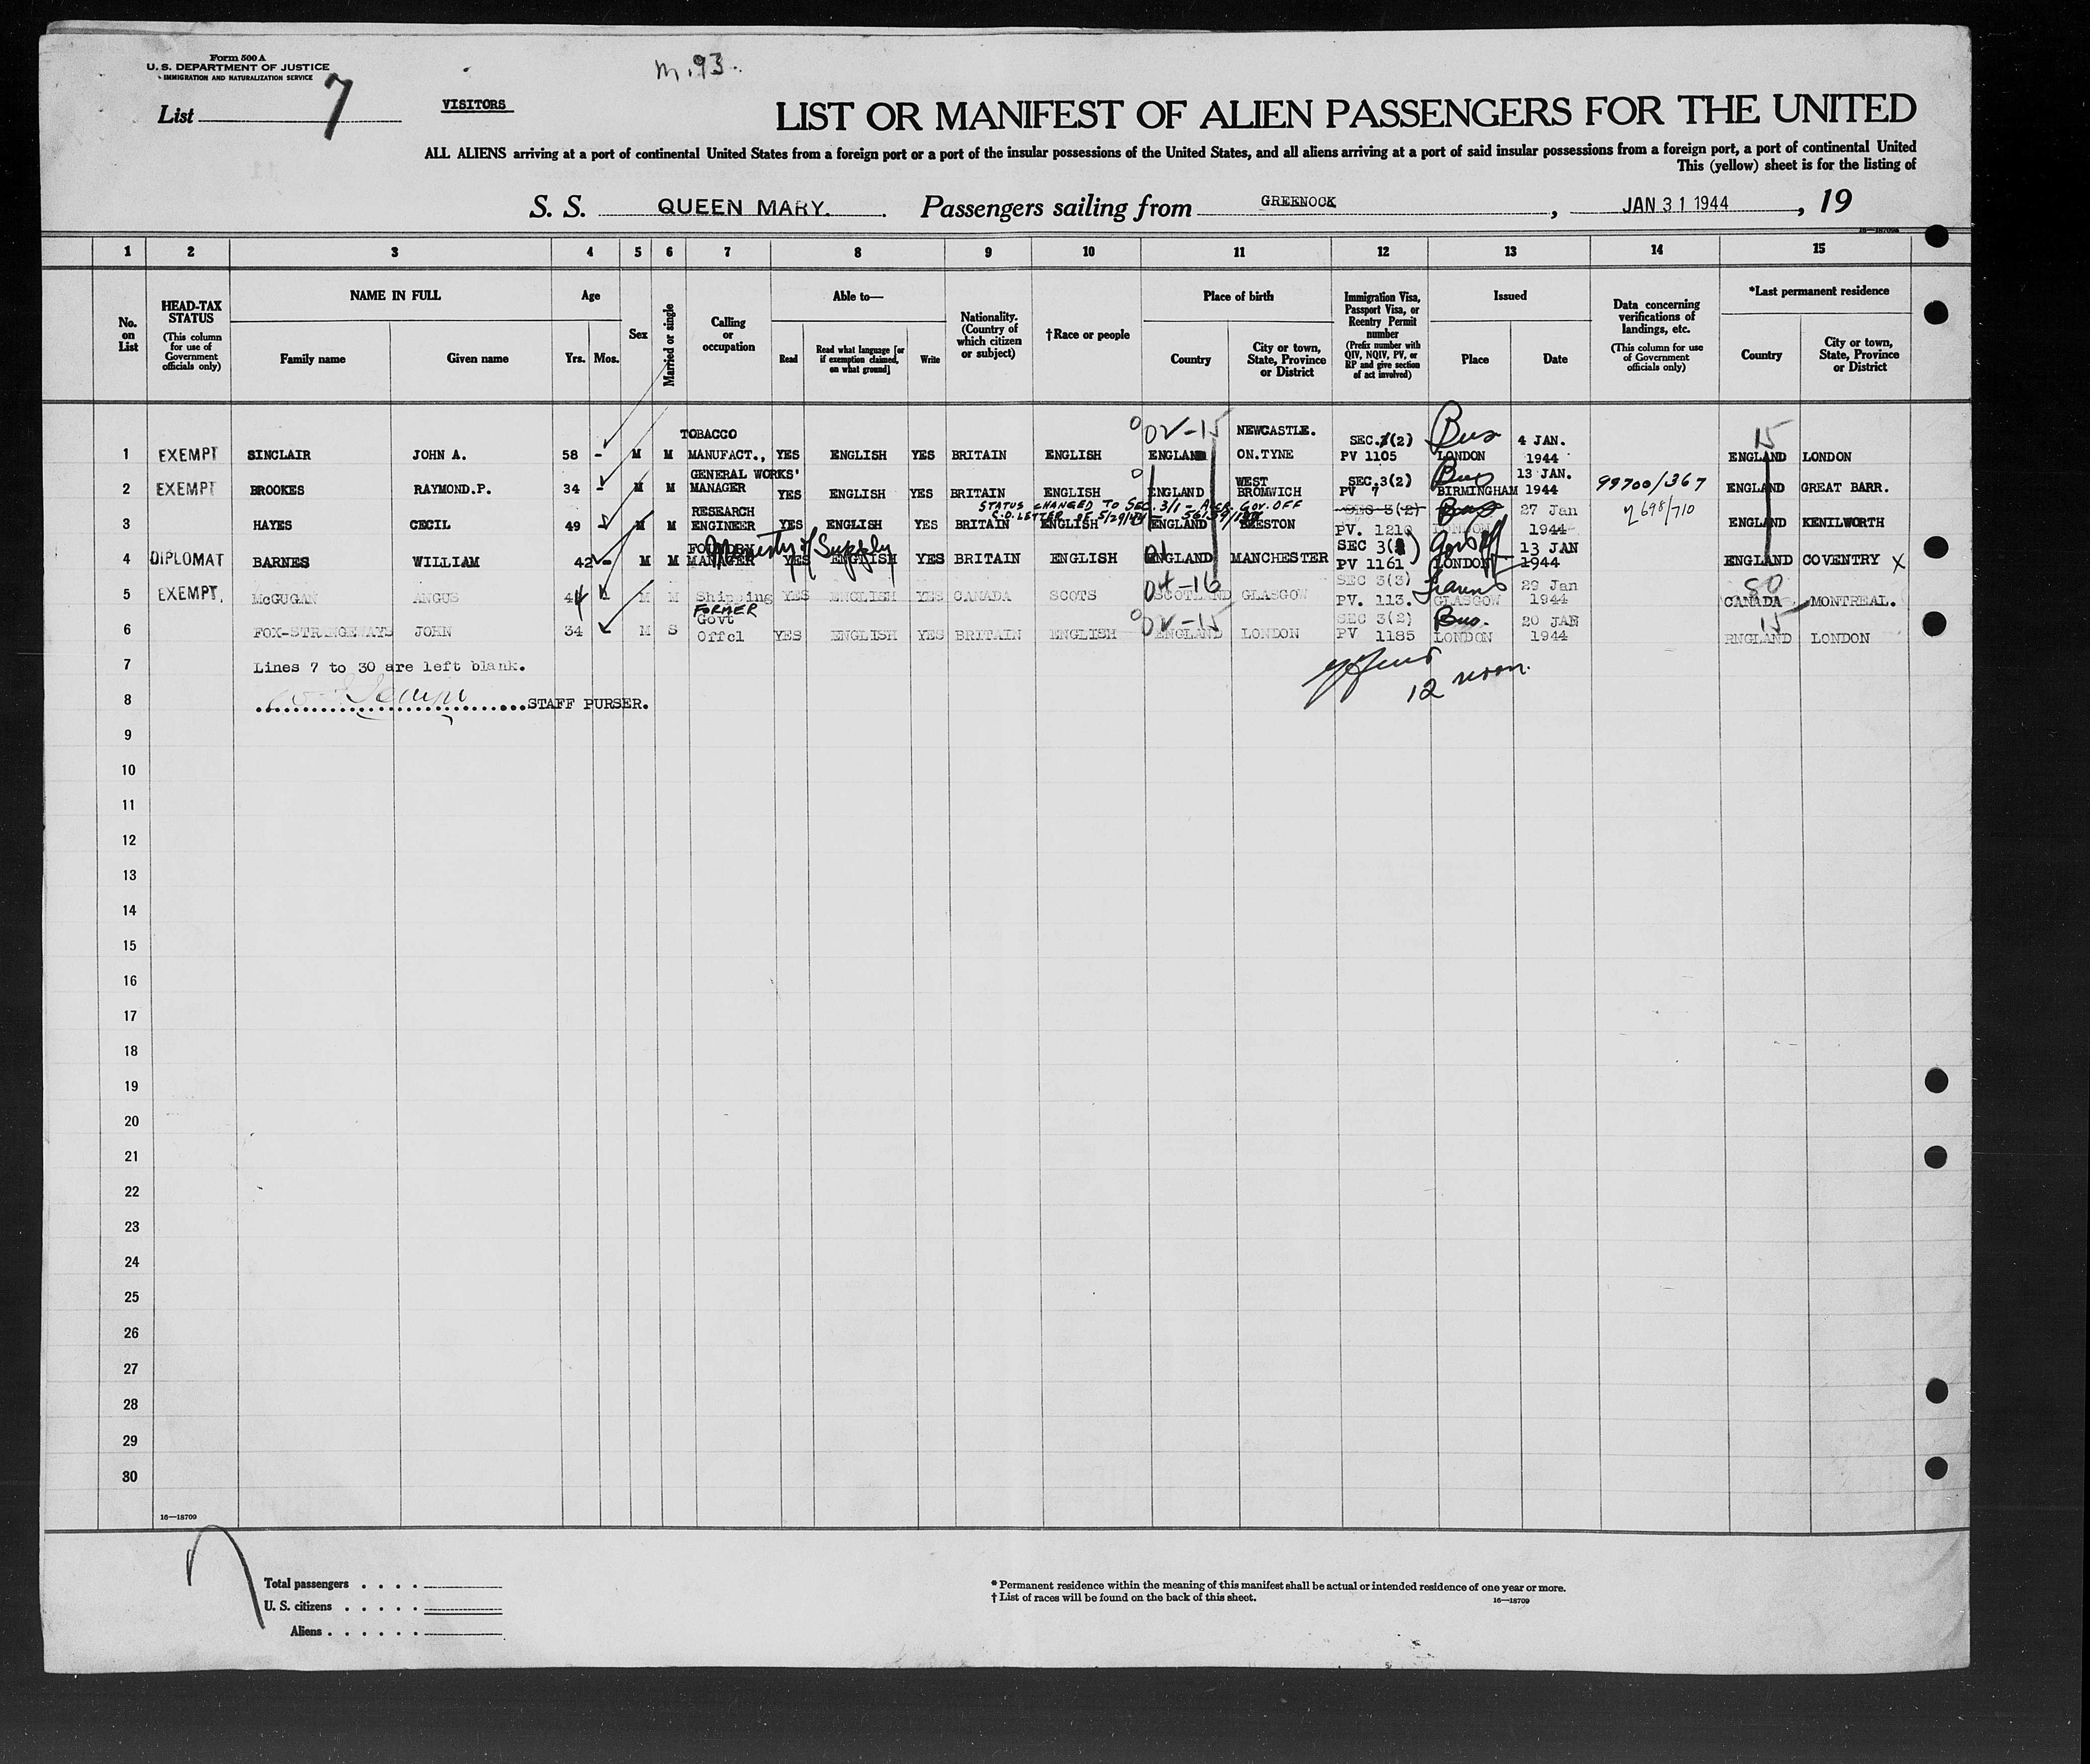 Form 500 A
U. S. DEPARTMENT OF JUSTICE
IMMIGRATION AND NATURALIZATION SERVICE
m. 93.
List 7
VISITORS
LIST OR MANIFEST OF ALIEN PASSENGERS FOR THE UNITED
ALL ALIENS arriving at a port of continental United States from a foreign port or a port of the insular possessions of the United States, and all aliens arriving at a port of said insular possessions from a foreign port, a port of continental United
This (yellow) sheet is for the listing of
S. S. QUEEN MARY. Passengers sailing from GREENOCK, JAN 31 1944, 19
16—18709a
1 2 3 4 5 6 7 8 9 10 11 12 13 14 15
No. on List
HEAD-TAX STATUS (This column for use of Government officials only)
NAME IN FULL Family name Given name
Age Yrs. Mos.
Sex
Married or single
Calling or occupation
Able to— Read Read what language [or if exemption claimed, on what ground] Write
Nationality. (Country of which citizen or subject)
†Race or people
Place of birth Country City or town, State, Province or District
Immigration Visa, Passport Visa, or Reentry Permit number (Prefix number with QIV, NQIV, PV, or RP and give section of act involved)
Issued Place Date
Data concerning verifications of landings, etc. (This column for use of Government officials only)
*Last permanent residence Country City or town, State, Province or District
1 EXEMPT SINCLAIR JOHN A. 58 - M M TOBACCO MANUFACT., YES ENGLISH YES BRITAIN ENGLISH ENGLAND NEWCASTLE. ON.TYNE SEC.3(2) PV 1105 Bus LONDON 4 JAN. 1944 15 ENGLAND LONDON
2 EXEMPT BROOKES RAYMOND.P. 34 - M M GENERAL WORKS' MANAGER YES ENGLISH YES BRITAIN ENGLISH ENGLAND WEST BROMWICH SEC.3(2) PV 7 Bus BIRMINGHAM 13 JAN. 1944 99700/367 ENGLAND GREAT BARR.
STATUS CHANGED TO SEC. 3/1 - GOV. OFF
C.O. LETTER OF 5/29/44
3 HAYES CECIL 49 M M RESEARCH ENGINEER YES ENGLISH YES BRITAIN ENGLISH ENGLAND BEESTON SEC 3(2) PV. 1210 Bus LONDON 27 Jan 1944 2698/710 ENGLAND KENILWORTH
4 DIPLOMAT BARNES WILLIAM 42 - M M FOUNDRY MANAGER Ministry of Supply YES ENGLISH YES BRITAIN ENGLISH ENGLAND MANCHESTER SEC 3(1) PV 1161 LONDON 13 JAN 1944 ENGLAND COVENTRY X
5 EXEMPT. McGUGAN ANGUS 44 M M Shipping YES ENGLISH YES CANADA SCOTS 04-16 SCOTLAND GLASGOW SEC 3(3) PV. 113. Trans GLASGOW 29 Jan 1944 80 CANADA MONTREAL.
6 FOX-STRANGEWAYS JOHN 34 M S FORMER Govt Offcl YES ENGLISH YES BRITAIN ENGLISH ENGLAND LONDON SEC 3(2) PV 1185 Bus. LONDON 20 JAN 1944 15 ENGLAND LONDON
7 Lines 7 to 30 are left blank.
12 noon.
8 STAFF PURSER.
9
10
11
12
13
14
15
16
17
18
19
20
21
22
23
24
25
26
27
28
29
30
16—18709
Total passengers
U. S. citizens
Aliens
* Permanent residence within the meaning of this manifest shall be actual or intended residence of one year or more.
† List of races will be found on the back of this sheet.
16—18709